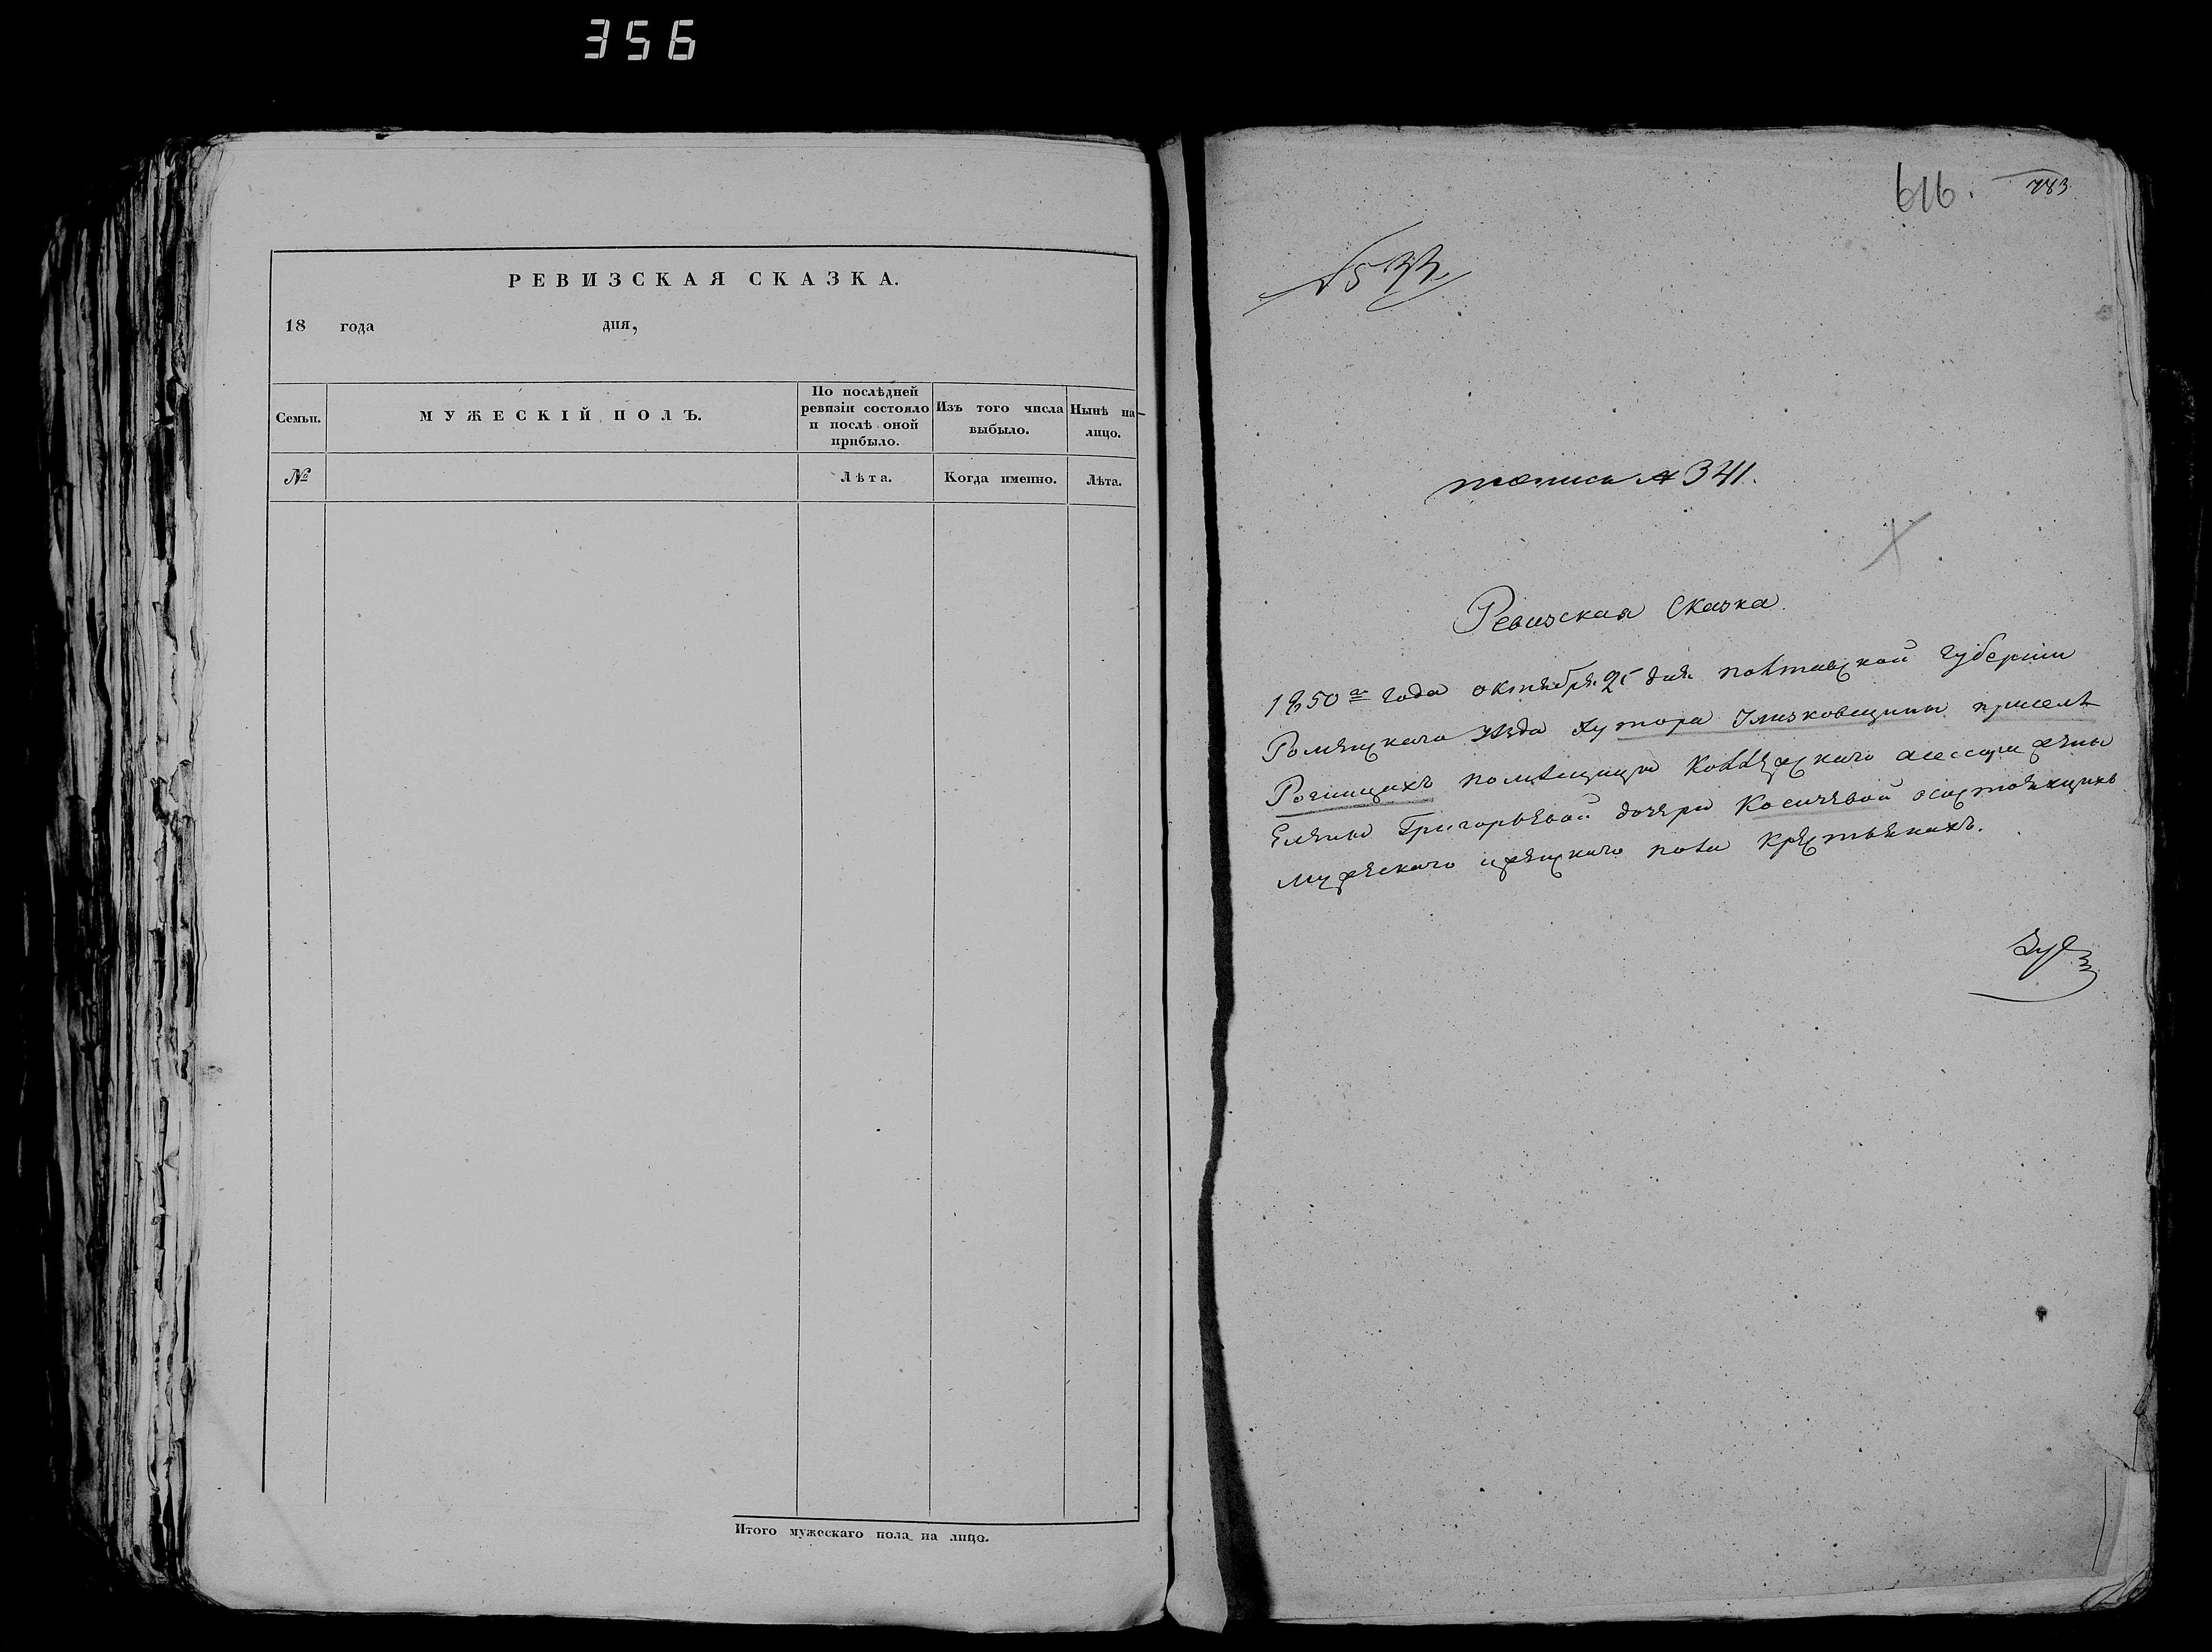 356
РЕВИЗСКАЯ СКАЗКА.
18 года дня,
Семьи.
МУЖЕСКІЙ ПОЛЪ.
По послѣдней
ревизіи состояло
и послѣ оной
прибыло.
Изъ того числа
выбыло.
Нынѣ на-
лицо.
№
Лѣта.
Когда именно.
Лѣта.
Итого мужескаго пола на лицо.
616. 783
записи № 341.
Ревизская Сказка.
1850го года октября 25 дня полтавской губерніи
Роменскаго уѣзда хутора при селѣ
помѣщицы Коллежскаго асессора жены
Елены Григорьевой дочери Косичевой осостоящихъ
мужескаго иженскаго пола крестьянахъ.